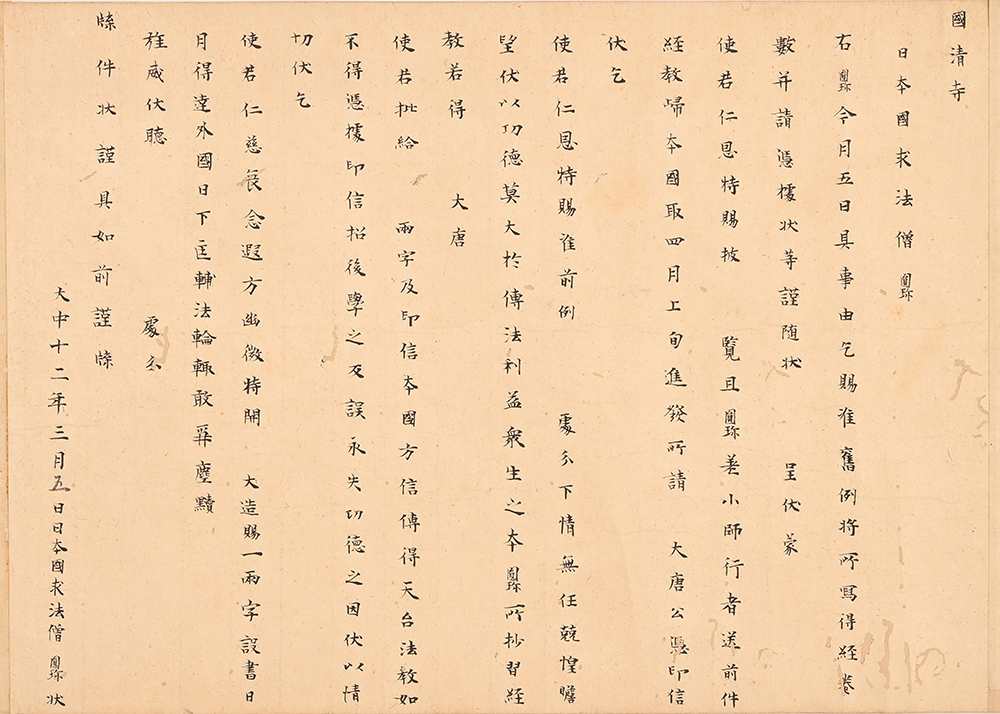 國清寺
日本國求法僧圓珎
右圓珎今月五日具事由乞賜准舊例將所寫得經卷
數并請憑據狀等謹随狀 呈伏蒙
使君仁恩特賜披 覽且圓珎差小師行者送前件
經教歸本國取四月上旬進發所請 大唐公憑印信
伏乞
使君仁恩特賜准前例 處分下情無任兢惶瞻
望伏以功德莫大於傳法利益衆生之本圓珎所抄習經
教若得 大唐
使君批給 兩字及印信本國方信傳得天台法教如
不得憑據印信招後學之疑誤永失功德之因伏以情
切伏乞
使君仁慈哀念遐方幽微特開 大造賜一兩字設書日
月得達外國日下匡輔法輪輙敢 塵黷
旌威伏聽 處分
牒件狀謹具如前謹牒
大中十二年三月五日日本國求法僧圓珎狀